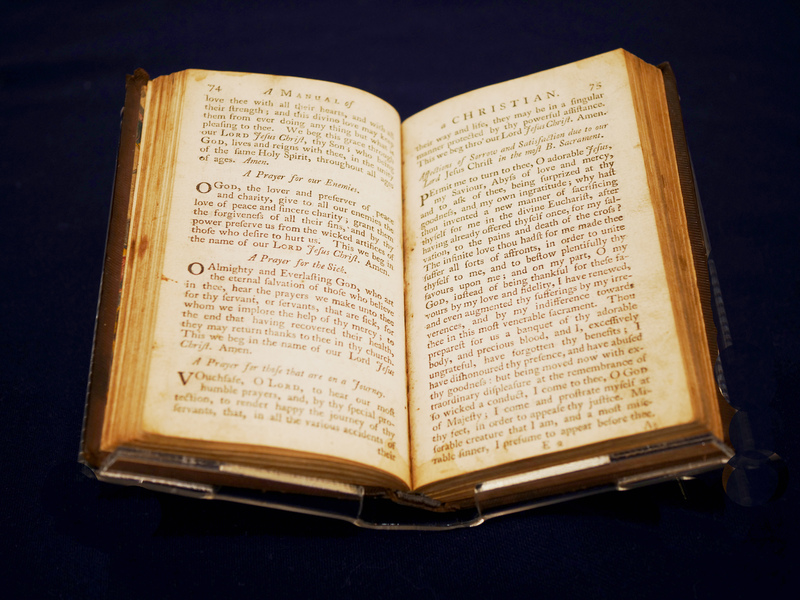 74
A MANUAL of
love thee with all their hearts, and with all
their strength; and this divine love may keep
them from ever doing any thing but what is
pleasing to thee. We beg this grace thro'
our LORD Jesus Chriſt, thy Son; who with
GOD, lives and reigns with thee, in the unity
of the same Holy Spirit, throughout all ages
of ages. Amen.
A Prayer for our Enemies.
O GOD, the lover and preſerver of peace
and charity, give to all our enemies the
love of peace and ſincere charity; grant them
the forgiveneſs of all their ſins, and by thy
power preſerve us from the wicked artifices of
thoſe who deſire to hurt us. This we beg in
the name of our LORD Jeſus Chriſt. Amen.
A Prayer for the Sick.
O Almighty and Everlaſting GOD, who art
the eternal ſalvation of thoſe who believe
in thee, hear the prayers we make unto thee
for thy ſervant, or ſervants, that are ſick, for
whom we implore the help of thy mercy; to
the end that having recovered their health,
they may return thanks to thee in thy church.
This we beg in the name of our Lord Jeſus
Chriſt. Amen.
A Prayer for thoſe that are on a Journey.
VOuchſafe, O LORD, to hear our moſt
humble prayers, and, by thy ſpecial pro-
tection, to render happy the journey of thy
ſervants, that, in all the various accidents of
their
a CHRISTIAN.
75
their way and life, they may be in a ſingular
manner protected by thy powerful aſſiſtance.
This we beg thro' our Lord Jeſus Chriſt. Amen.
Affections of Sorrow and Satisfaction due to our
Lord Jeſus Chriſt in the moſt B. Sacrament.
PErmit me to turn to thee, O adorable Jeſus,
my Saviour, Abyſs of love and mercy,
and to aſk of thee, being ſurprized at thy
goodneſs, and my own ingratitude; why haſt
thou invented a new manner of ſacrificing
thyſelf for me in the divine Euchariſt, after
having already offered thyſelf once, for my ſal-
vation, to the pains and death of the croſs?
The infinite love thou hadſt for me made thee
ſuffer all ſorts of affronts, in order to unite
thyſelf to me, and to beſtow plentifully thy
favours upon me; and on my part, O my
God, inſtead of being thankful for theſe fa-
vours by my love and fidelity, I have renewed,
and even augmented thy ſufferings by my irre-
verences, and by my indifference towards
thee in this moſt venerable sacrament. Thou
prepareſt for us a banquet of thy adorable
body, and precious blood, and I, exceſſively
ungrateful, have forgotten thy benefits; I
have diſhonoured thy preſence, and have abuſed
thy goodneſs: but being moved now with ex-
traordinary diſpleaſure at the remembrance of
ſo wicked a conduct, I come to thee, O GOD
of Majeſty; I come and proſtrate myſelf at
thy feet, in order to appeaſe thy juſtice. Mi-
ſerable creature that I am, and a moſt miſe-
rable ſinner, I preſume to appear before thee.
E 2